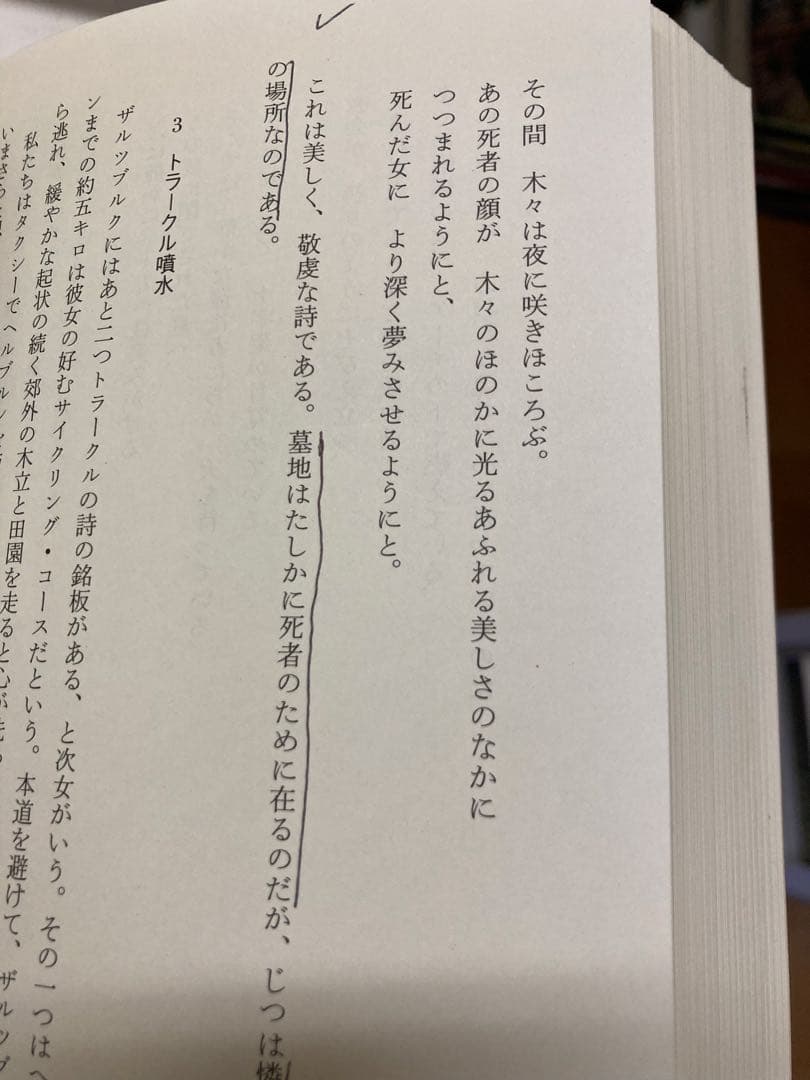 その間　木々は夜に咲きほころぶ。
あの死者の顔が　木々のほのかに光るあふれる美しさのなかに
つつまれるようにと、
死んだ女に　より深く夢みさせるようにと。
これは美しく、敬虔な詩である。墓地はたしかに死者のために在るのだが、じつは憐
の場所なのである。
3　トラークル噴水
ザルツブルクにはあと二つトラークルの詩の銘板がある、と次女がいう。その一つはヘ
ンまでの約五キロは彼女の好むサイクリング・コースだという。本道を避けて、ザルツブ
ら逃れ、緩やかな起状の続く郊外の木立と田園を走ると心が
私たちはタクシーでヘルブルン